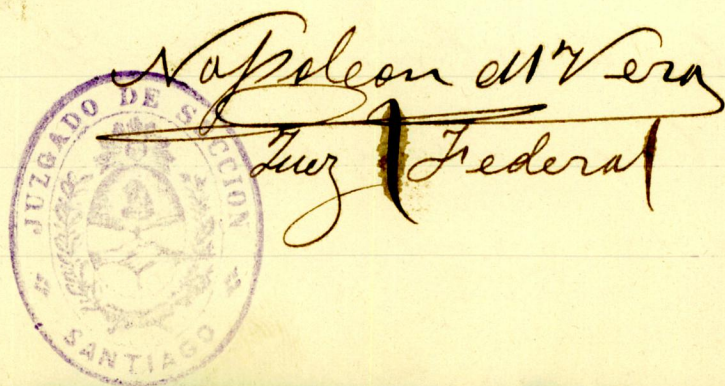 Napoleon M Vera
Juez Federal
JUZGADO DE SECCION
SANTIAGO